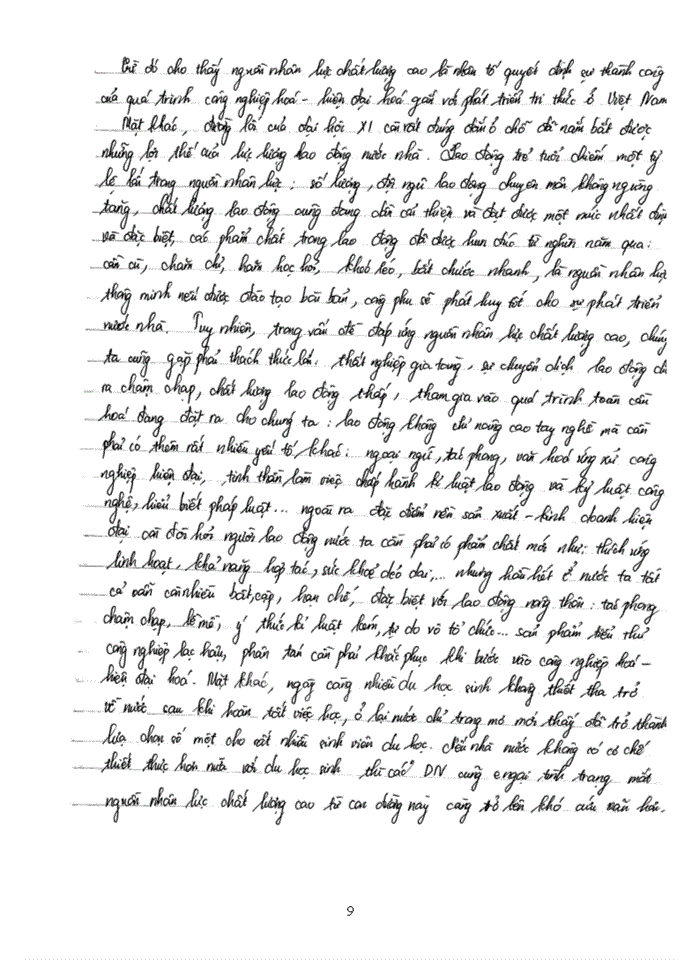 Từ đó cho thấy nguồn nhân lực chất lượng cao là nhân tố quyết định sự thành công
của quá trình công nghiệp hoá - hiện đại hoá gắn với phát triển tri thức ở Việt Nam.
Mặt khác, đường lối của đại hội XI còn rất đúng đắn ở chỗ đã nắm bắt được
những lợi thế của lực lượng lao động nước nhà. Lao động trẻ tuổi chiếm một tỷ
lệ lớn trong nguồn nhân lực: số lượng, đội ngũ lao động chuyên môn không ngừng
tăng, chất lượng lao động cũng đang dần cải thiện và đạt được một mức nhất định
và đặc biệt, các phẩm chất trong lao động đã được hun đúc từ nghìn năm qua:
cần cù, chăm chỉ, ham học hỏi, khéo léo, bắt chước nhanh, là nguồn nhân lực
thông minh nếu được đào tạo bài bản, công phu sẽ phát huy tốt cho sự phát triển
nước nhà. Tuy nhiên, trong vấn đề đáp ứng nguồn nhân lực chất lượng cao, chúng
ta cũng gặp phải thách thức lớn: thất nghiệp gia tăng, sự chuyển dịch lao động diễn
ra chậm chạp, chất lượng lao động thấp, tham gia vào quá trình toàn cầu
hoá đang đặt ra cho chúng ta: lao động không chỉ nâng cao tay nghề mà còn
phải có thêm rất nhiều yếu tố khác: ngoại ngữ, tác phong, văn hoá ứng xử công
nghiệp hiện đại, tinh thần làm việc chấp hành kỉ luật lao động và kỷ luật công
nghệ, hiểu biết pháp luật... ngoài ra đặc điểm nền sản xuất - kinh doanh hiện
đại còn đòi hỏi người lao động nước ta cần phải có phẩm chất mới như: thích ứng
linh hoạt, khả năng hợp tác, sức khoẻ dẻo dai,... nhưng hầu hết ở nước ta tất
cả vẫn còn nhiều bất cập, hạn chế, đặc biệt với lao động nông thôn: tác phong
chậm chạp, lề mề, ý thức kỉ luật kém, tự do vô tổ chức... sản phẩm tiểu thủ
công nghiệp lạc hậu, phân tán cần phải khắc phục khi bước vào công nghiệp hoá -
hiện đại hoá. Mặt khác, ngày càng nhiều du học sinh không thiết tha trở
về nước sau khi hoàn tất việc học, ở lại nước chỉ trong mơ mới thấy đã trở thành
lựa chọn số một cho rất nhiều sinh viên du học. Nếu nhà nước không có cơ chế
thiết thực hơn nữa với du học sinh thì các DN cũng e ngại tình trạng mất
nguồn nhân lực chất lượng cao từ con đường này càng trở lên khó cứu vãn hơn.
9